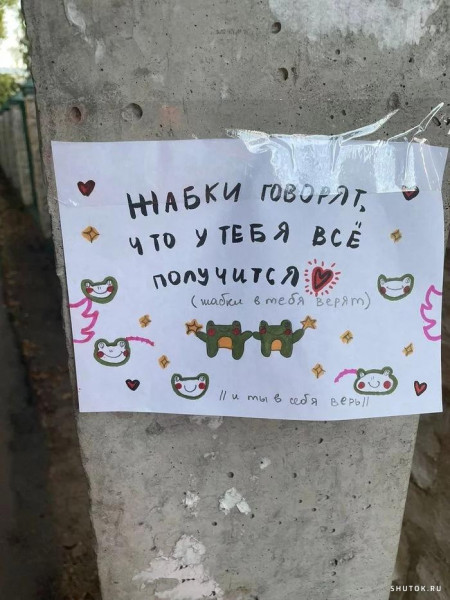 ЖАБКИ ГОВОРЯТ,
ЧТО У ТЕБЯ ВСЁ
ПОЛУЧИТСЯ
(жабки в тебя верят)
|| и ты в себя верь ||
SHUTOK.RU